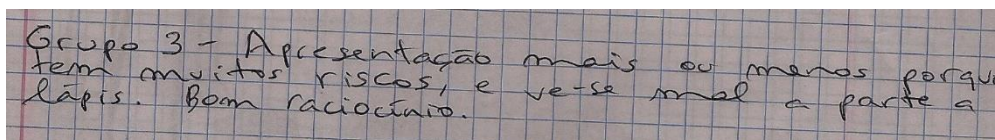 Grupo 3 - Apresentação mais ou menos porqu
tem muitos riscos, e ve-se mal a parte a
lápis. Bom raciocínio.